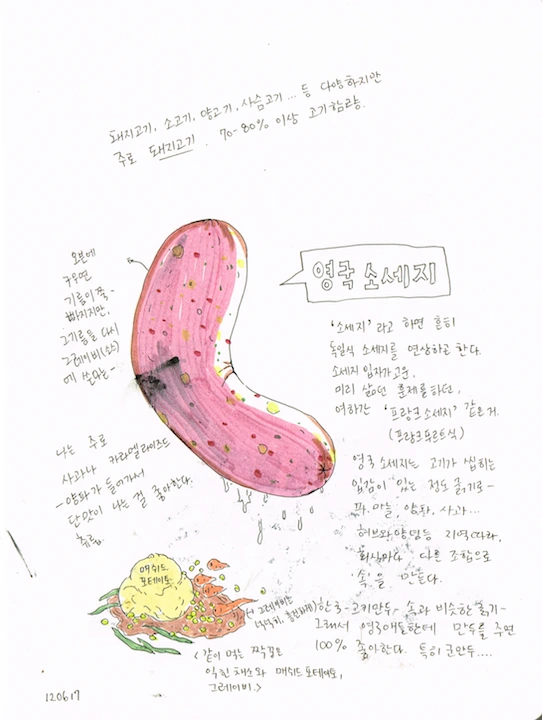 돼지고기, 소고기, 양고기, 사슴고기... 등 다양하지만
주로 돼지고기. 70-80% 이상 고기함량.
영국 소세지
오븐에
구우면
기름이 쭉-
빠지지만,
그 기름을 다시
그레이비(소스)
에 쓴다는-
'소세지' 라고 하면 흔히
독일식 소세지를 연상하곤 한다.
소세지 입자가 고운,
미리 삶던 훈제를 하던,
여하간 '프랑크 소세지' 같은거.
(프랑크푸르트식)
나는 주로
사과나 카라멜라이즈드
-양파가 들어가서
단맛이 나는 걸 좋아한다.
영국 소세지는 고기가 씹히는
입감이 있는 정도 굵기로-
파, 마늘, 양파, 사과...
허브와 양념등 지역따라,
회사마다 다른 조합으로
'속'을 만든다.
한국-고기만두 속과 비슷한 굵기-
그래서 영국애들한테 만두를 주면
100% 좋아한다. 특히 군만두....
매쉬드
포테이토
(그레이비는
<같이 먹는 짝꿍은
익힌 채소와 매쉬드 포테이토,
그레이비.>
120617